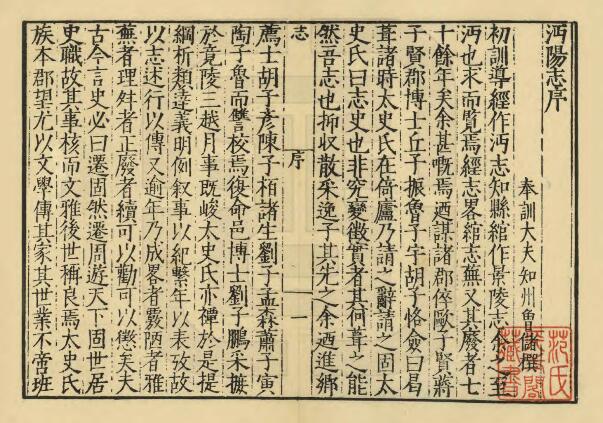 沔陽志序
奉訓大夫知州魯儲撰
初訓導經作沔志知縣綰作景陵志余之至
沔也求而覧焉經志畧綰志無又其廢者七
十餘年矣余甚慨焉迺謀諸郡倅歐子賢蔣
子賢郡博士丘子振魯子宇胡子恪僉曰曷
葺諸時太史氏在倚廬乃請之辭請之固太
史氏曰志史也非究變徵實者其何葺之能
然吾志也抑收散采逸子其先之余迺進鄉
志
序
一
薦士胡子彦陳子栢諸生劉子孟森蕭子寅
陶子魯而讐校焉復命邑博士劉子鵬采摭
於竟陵三越月事既峻太史氏亦禫於是提
綱析類達義明例叙事以紀繫年以表攷故
以志述行以傳又逾年乃成畧者覈陋者雅
蕪者理舛者正廢者續可以勸可以懲矣夫
古今言史必曰遷固然遷周遊天下固世居
史職故其事核而文雅後世稱良焉太史氏
族本郡望尤以文學傳其家其世業不帝班
范氏
天一閣
藏書